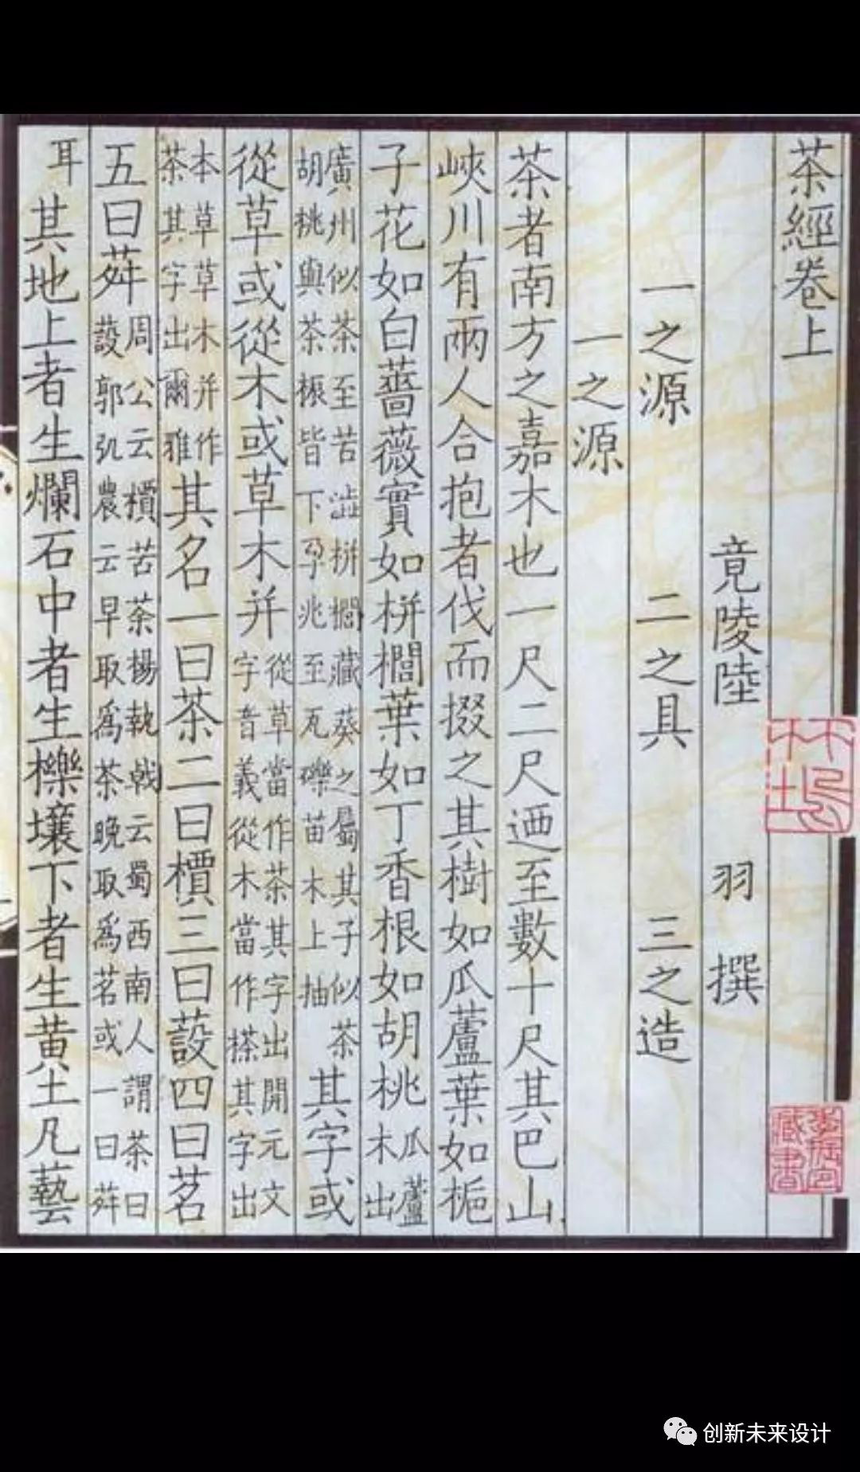 茶經卷上
竟陵陸 羽 撰
一之源 二之具 三之造
一之源
茶者南方之嘉木也一尺二尺迺至數十尺其巴山
峽川有兩人合抱者伐而掇之其樹如瓜蘆葉如梔
子花如白薔薇實如栟櫚葉如丁香根如胡桃瓜蘆木出
廣州似茶至苦澁栟櫚藏葵之屬其子似茶胡桃與茶桭皆下孕兆至瓦礫苗木上抽其字或
從草或從木或草木并從草當作茶其字出開元文字音義從木當作搽其字出
本草草木并作茶其字出爾雅其名一曰茶二曰檟三曰蔎四曰茗
五曰荈周公云檟苦茶揚執戟云蜀西南人謂茶曰蔎郭弘農云早取爲茶晚取爲茗或一曰荈
耳其地上者生爛石中者生櫟壤下者生黄土凡藝
藏書
创新未来设计